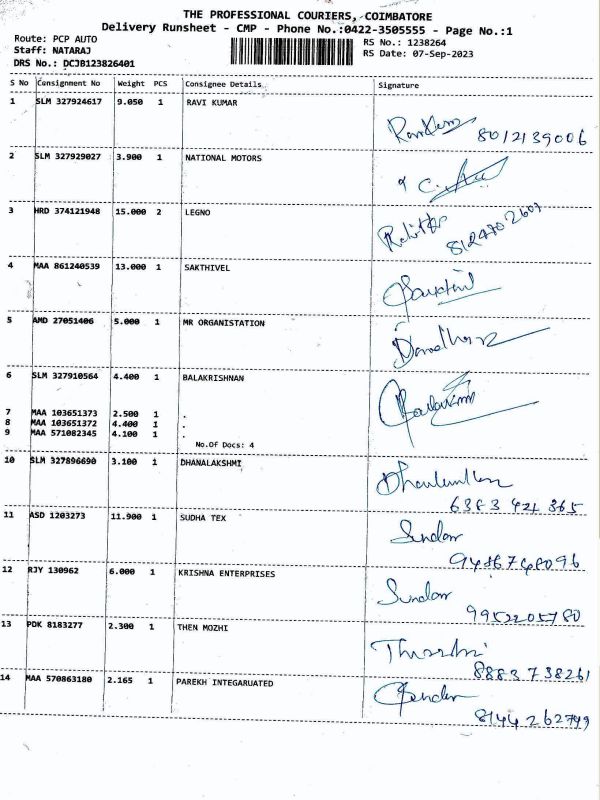 THE PROFESSIONAL COURIERS, COIMBATORE
Delivery Runsheet - CMP - Phone No.:0422-3505555 - Page No.:1
Route: PCP AUTO
RS No.: 1238264
Staff: NATARAJ
RS Date: 07-Sep-2023
DRS No.: DCJB123826401
S No Consignment No Weight PCS Consignee Details.. Signature
1 SLM 327924617 9.050 1 RAVI KUMAR
8012139006
2 SLM 327929027 3.900 1 NATIONAL MOTORS
3 HRD 374121948 15.000 2 LEGNO
4 MAA 861240539 13.000 1 SAKTHIVEL
5 AMD 27051406 5.000 1 MR ORGANISTATION
6 SLM 327910564 4.400 1 BALAKRISHNAN
7 MAA 103651373 2.500 1 .
8 MAA 103651372 4.400 1 .
9 MAA 571082345 4.100 1 .
No.Of Docs: 4
10 SLM 327896690 3.100 1 DHANALAKSHMI
6383 421 365
11 ASD 1203273 11.900 1 SUDHA TEX
Sundar
12 RJY 130962 6.000 1 KRISHNA ENTERPRISES
Sundar
9952205780
13 PDK 8183277 2.300 1 THEN MOZHI
8883738261
14 MAA 570863180 2.165 1 PAREKH INTEGARUATED
8144262799